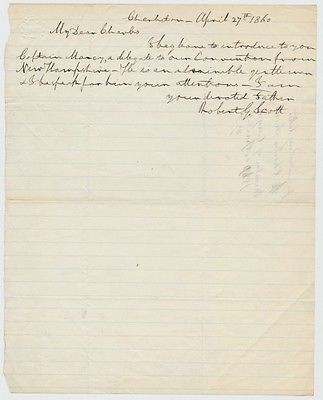 Charleston - April 27th 1860
My Dear Charles
I beg leave to introduce to you
Captain Marcy, a delegate to our Convention from
New Hampshire - He is an estimable gentleman
& I bespeak for him your attentions - I am
your devoted Father
Robert G. Scott